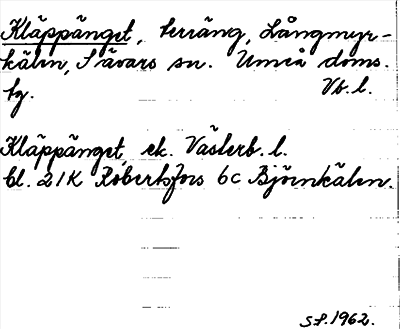 Kläppänget, terräng, Långmyr-
kälen, Sävars sn. Umeå doms.
hg. Vb. l.
Kläppänget, ek. Västerb. l.
bl. 21K Robertsfors 6c Björnkälen.
S.f. 1962.